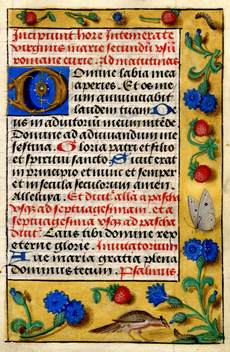 Incipiunt hore Intemerate
virginis marie secundū vsū
romane curie. Ad matutinas
Domine labia mea
aperies. Et os me
um annunciabit
laudem tuam. De
us in adiutorium meum inten
de. Domine ad adiuuandum me
festina. Gloria patri et filio
et spiritui sancto. Sicut erat
in principio et nunc et semper
et in secula seculorum amen.
Alleluya. Et dicit alla a pascha
vsqz ad septuagesimam. et a
septuagesima vsqz ad pascha
dicit. Laus tibi domine rex
eterne glorie. Inuitatorium
Aue maria gratia plena
dominus tecum. Psalmus.